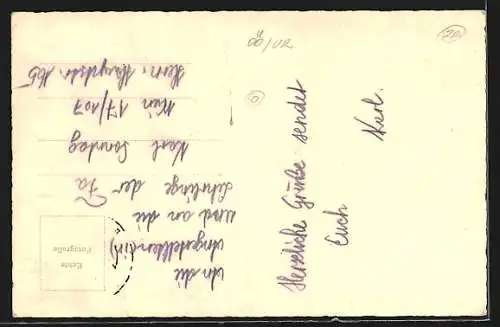 Herzliche Grüße sendet
Euch
Karl.
An die
Angestellten(in)
und an die
Lehrlinge der Fa
Karl Sonntag
Wien 17/107
Hern. Hauptstr. 165
Echte
Fotografie
OÖ/VR
20
0